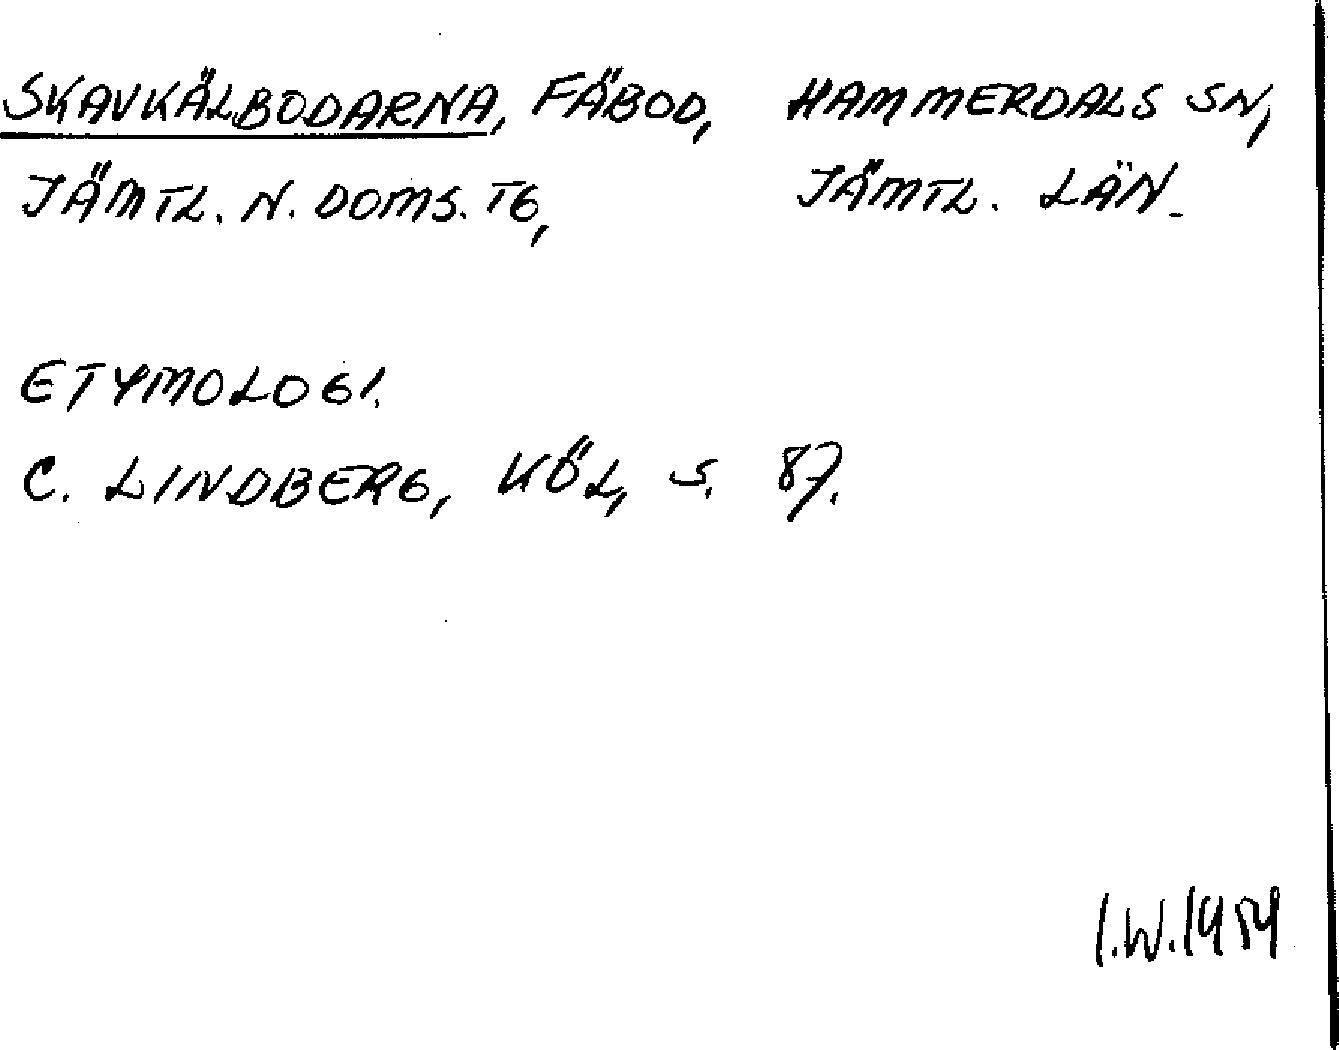 SKAVKÄLBODARNA, FÄBOD, HAMMERDALS SN,
JÄMTL. N. DOMS. TG, JÄMTL. LÄN.
ETYMOLOGI.
C. LINDBERG, KÖL, S. 87.
I.W. 1954